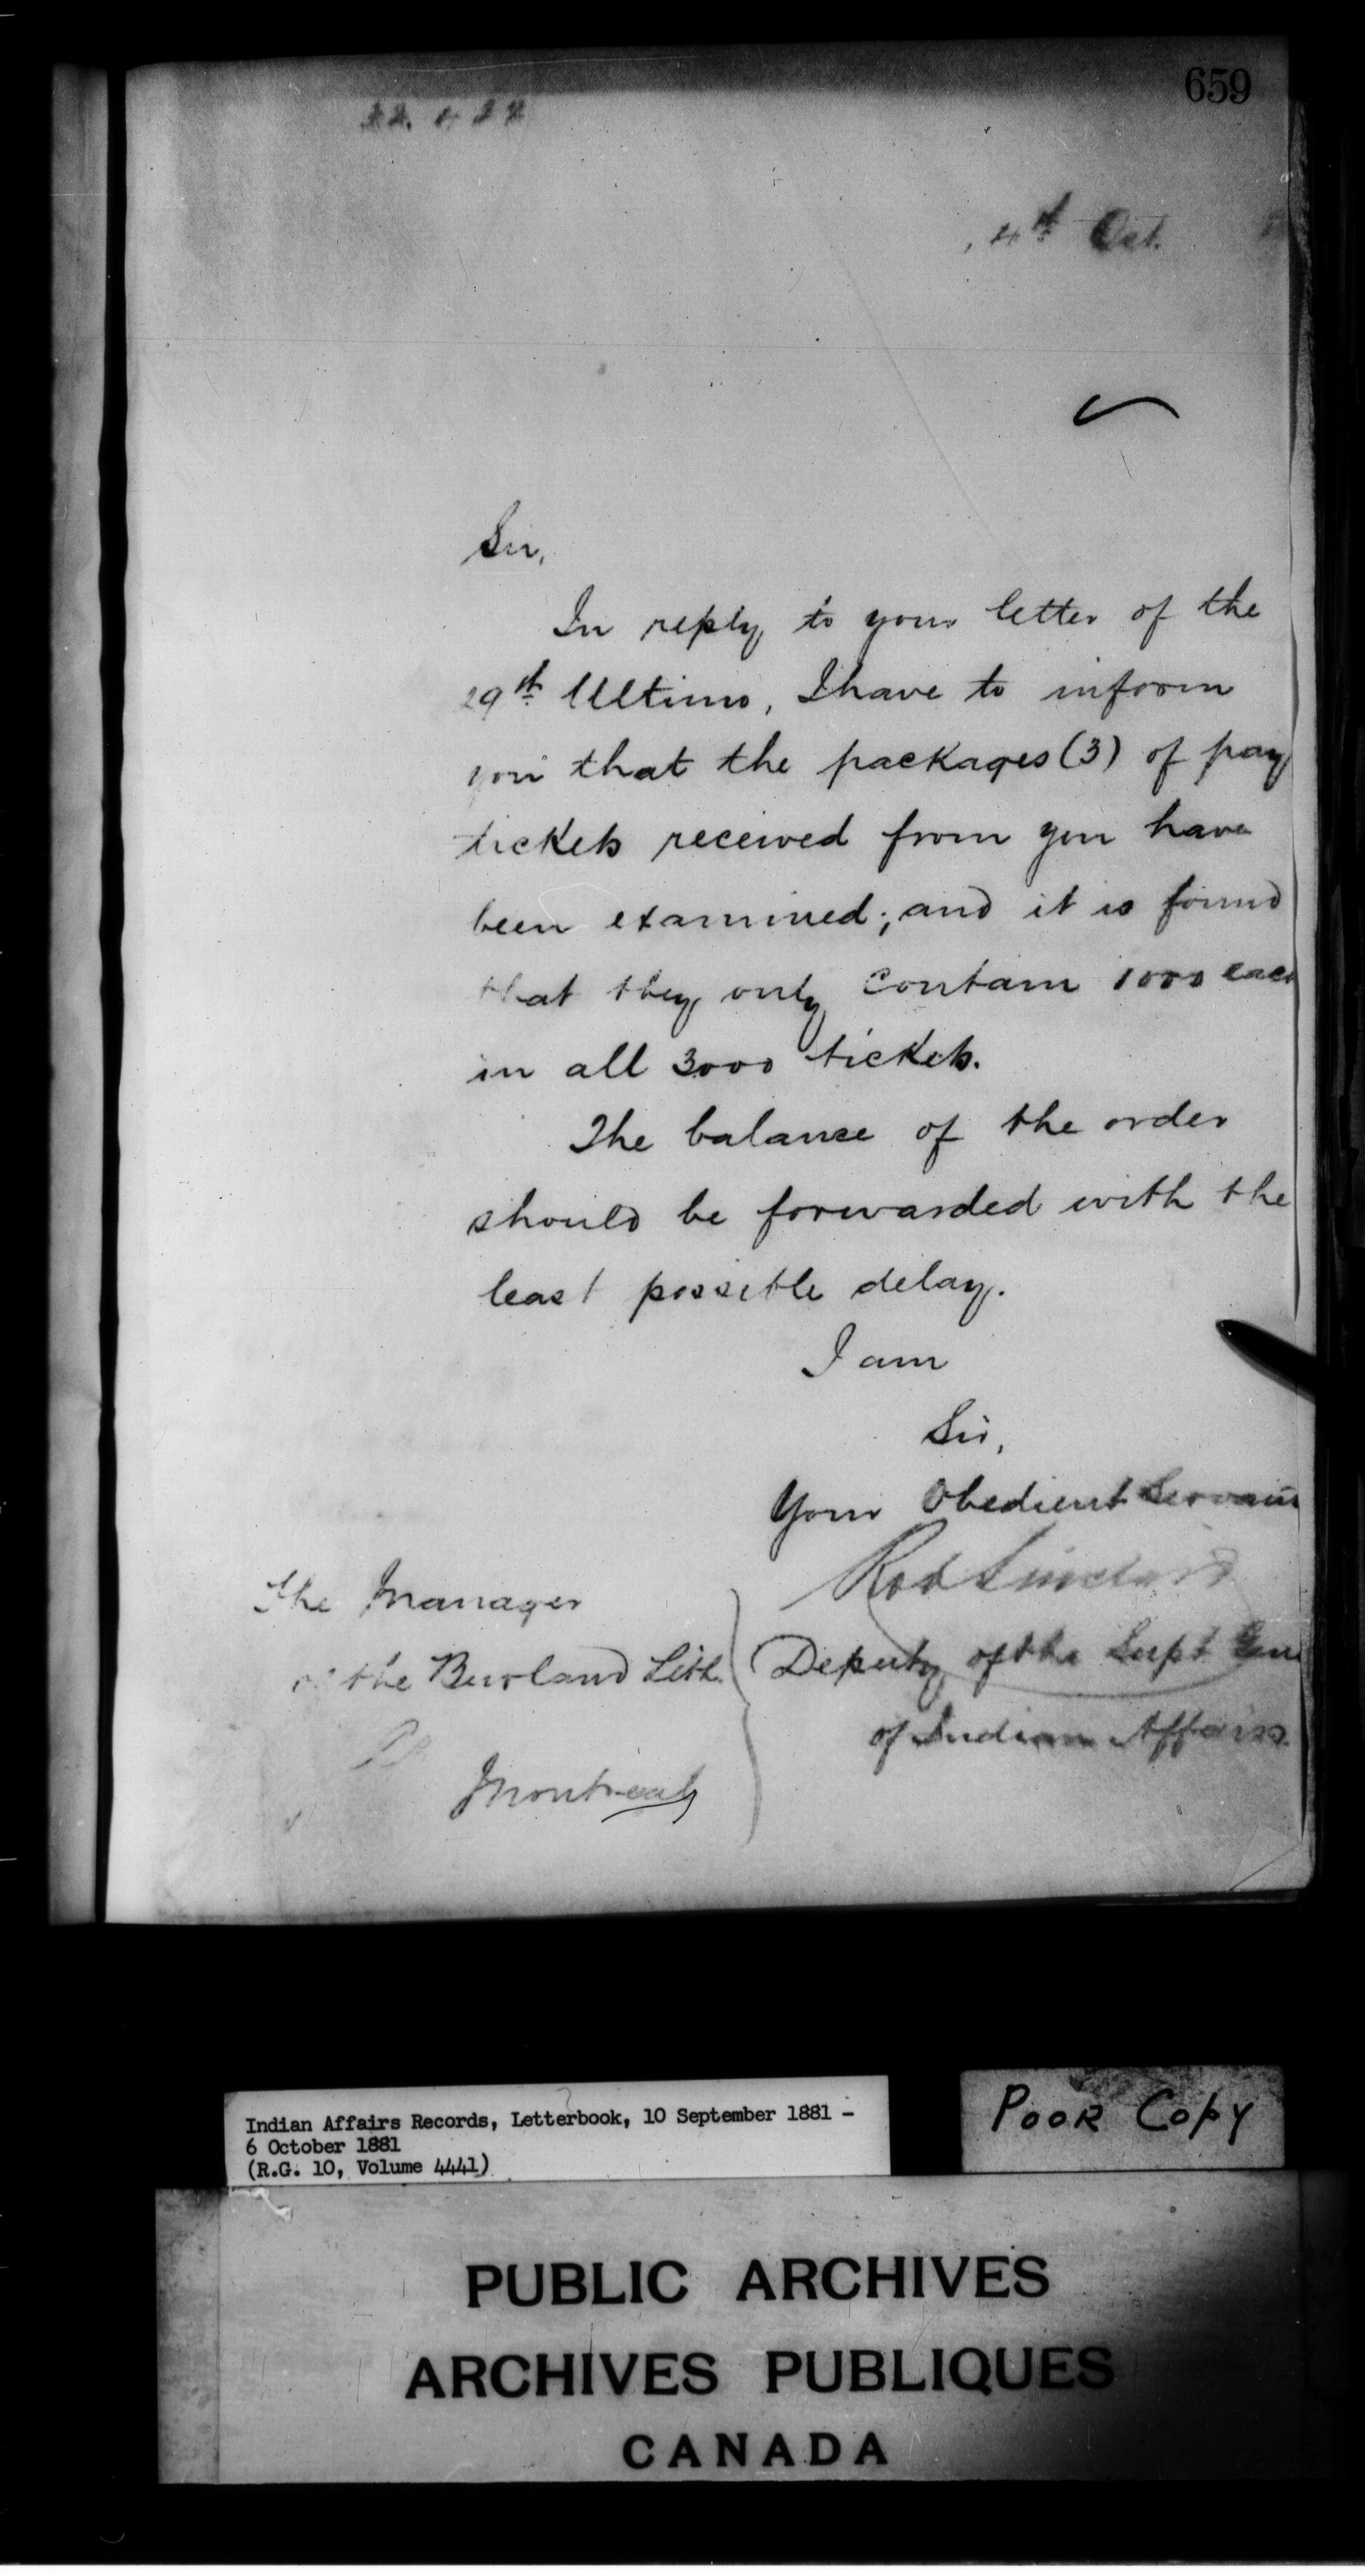 659
4th Oct.
Sir,
In reply to your letter of the
29th Ultimo, I have to inform
you that the packages (3) of pay
tickets received from you have
been examined; and it is found
that they only contain 1000 each
in all 3000 tickets.
The balance of the order
should be forwarded with the
least possible delay.
I am
Sir,
Your Obedient Servant
Rob Sinclair
The Manager
of the Burland Lith.
Deputy of the Supt Gen
of Indian Affairs.
Montreal
Indian Affairs Records, Letterbook, 10 September 1881 -
6 October 1881
(R.G. 10, Volume 4441)
POOR COPY
PUBLIC ARCHIVES
ARCHIVES PUBLIQUES
CANADA